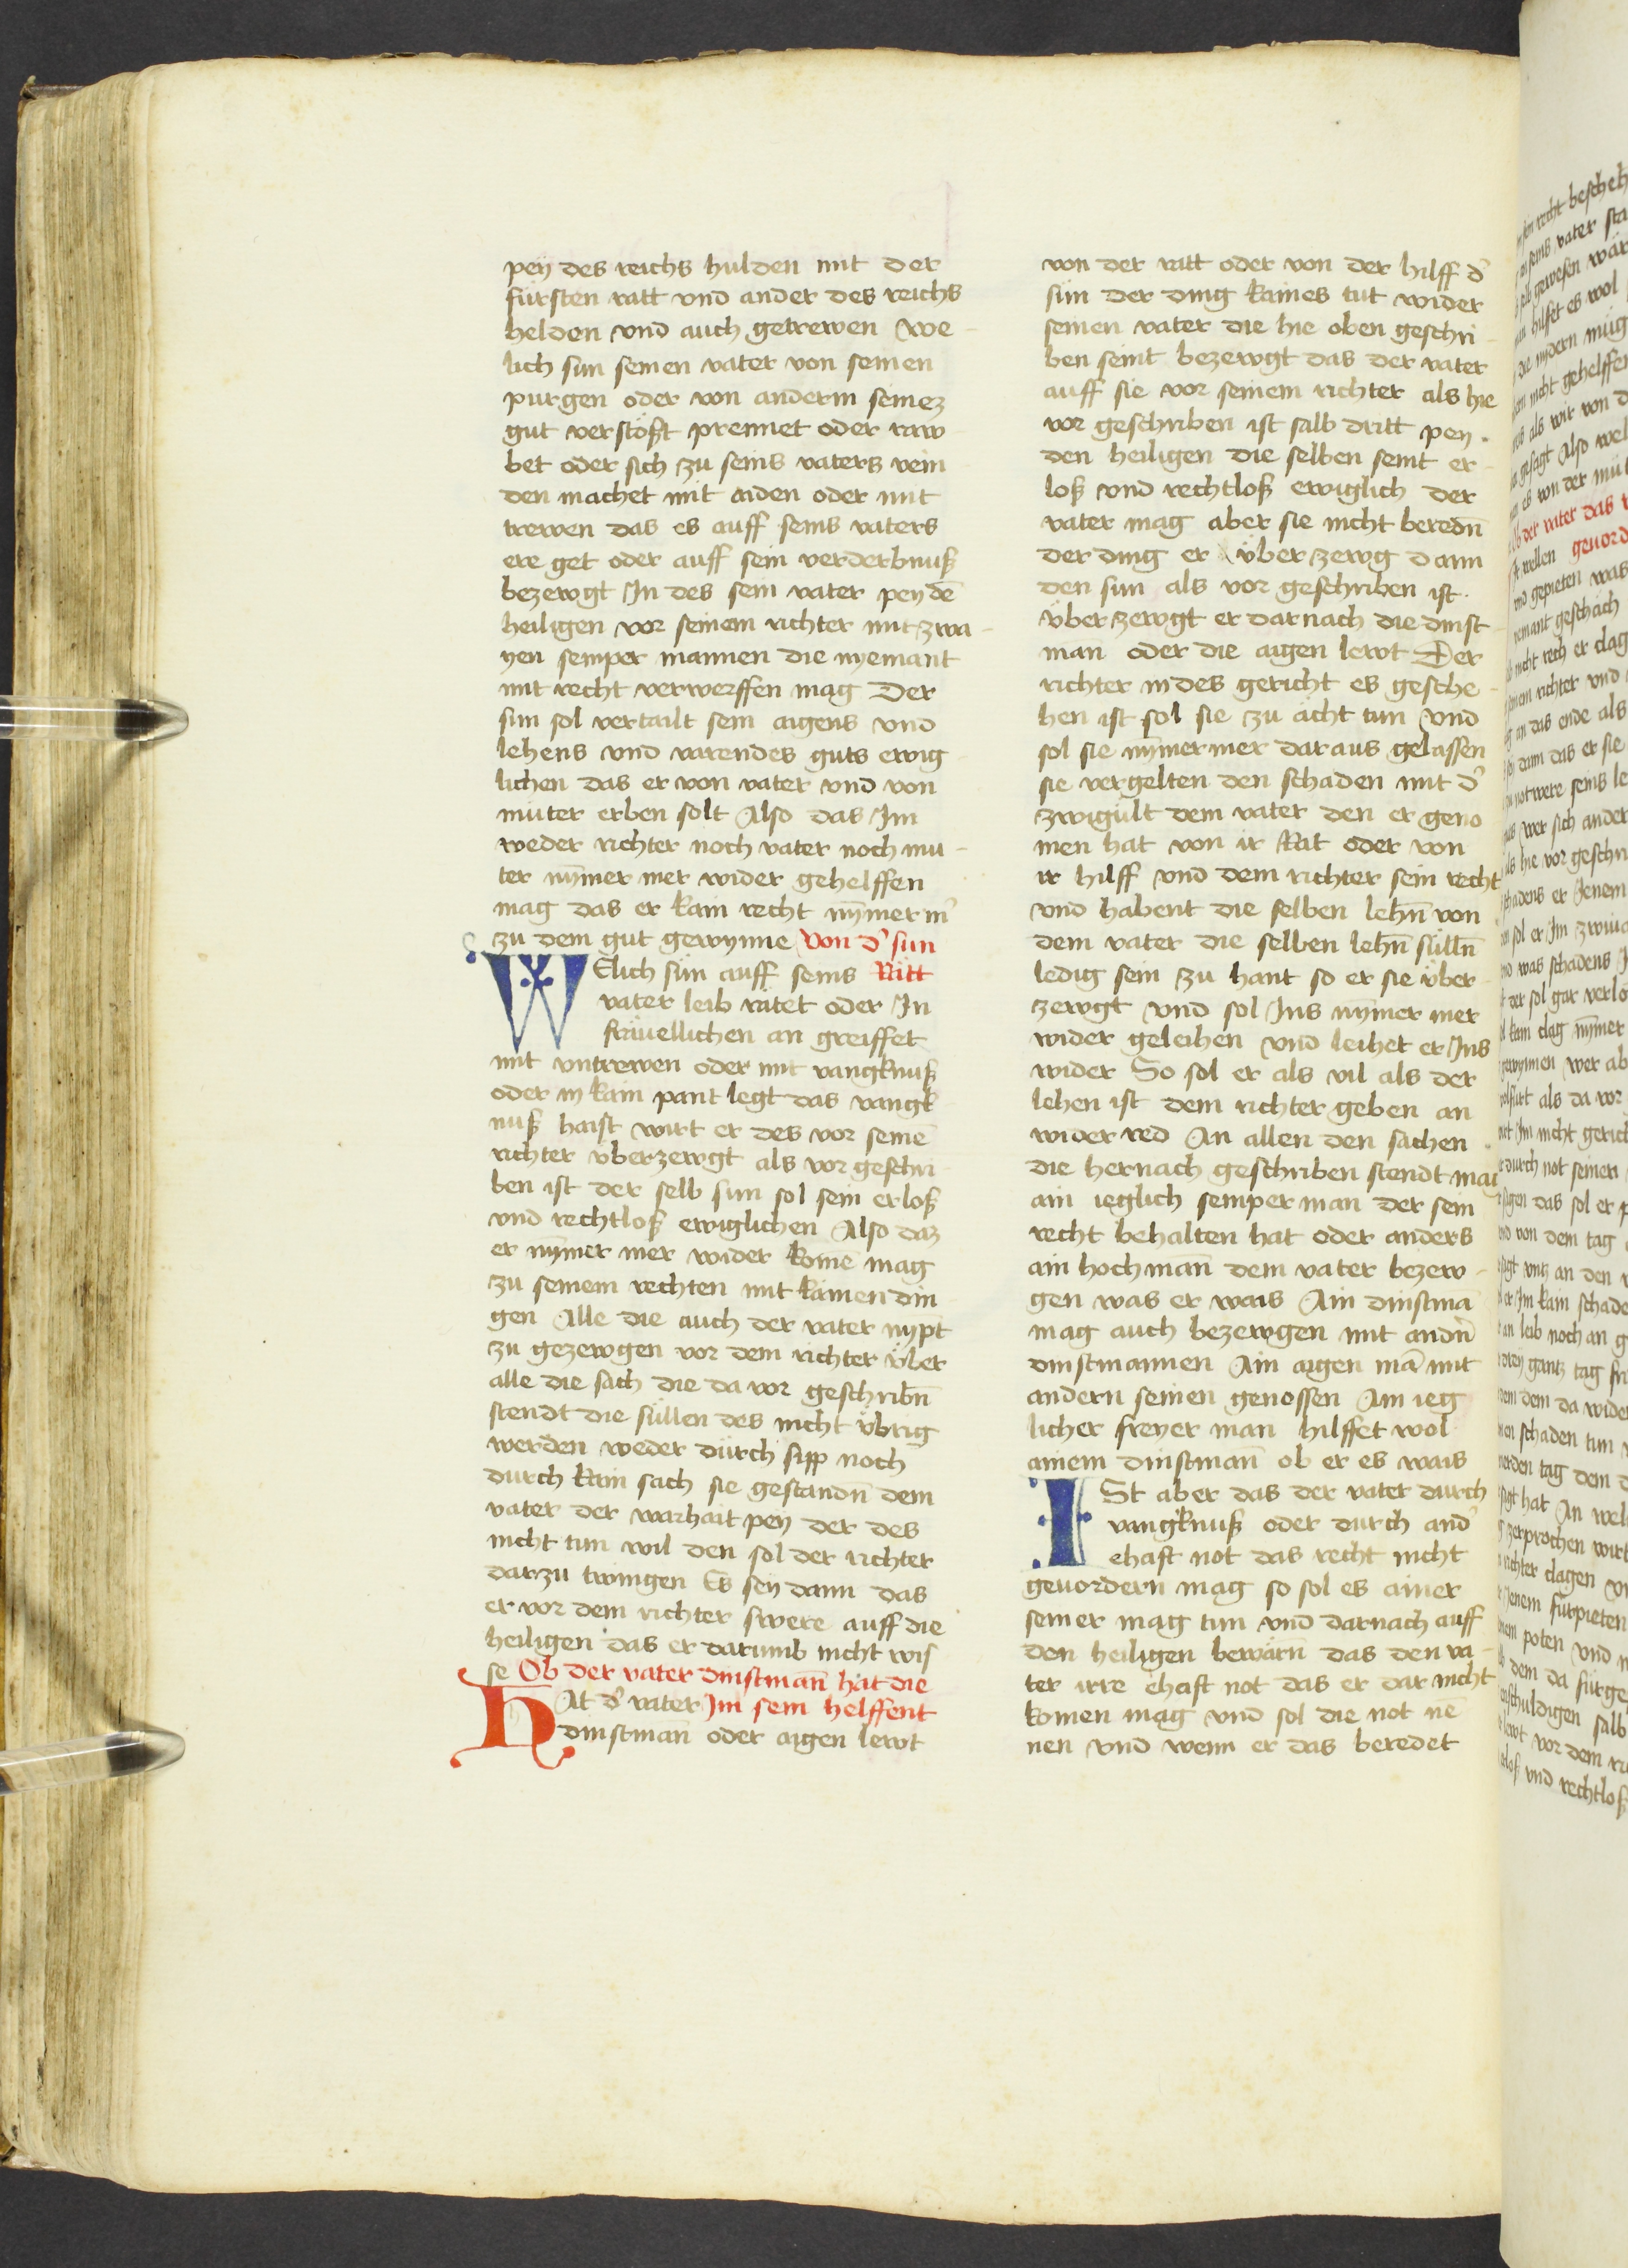 pey des reichs hulden mit der
fürsten ratt vnd ander des reichs
helden vnd auch getrewen We-
lich sun seinen vater von seinen
purgen oder von anderm seinez
gut verstößt prennet oder raw-
bet oder sich zu seins vaters vein-
den machet mit aiden oder mit
trewen das es auff seins vaters
ere get oder auff sein verderbnuß
bezewgt In des sein vater pey dē
heiligen vor seinem richter mit zwa-
yen semper mannen die nyemant
mit recht verwerffen mag Der
sun sol vertailt sein aigens vnd
lehens vnd varendes guts ewig-
lichen das er von vater vnd von
müter erben solt Also das Im
weder richter noch vater noch mu-
ter nȳmer mer wider gehelffen
mag das er kain recht nȳmer m̄
zu dem gut gewynne Von d' sun
WElich sün auff seins Ritt
vater leib ratet oder In
fräuellichen an greiffet
mit vntrewen oder mit vangknuß
oder in kain pant legt das vangk
nuß haist wirt er des vor seinē
richter vberzewgt als vor geschri-
ben ist der selb sun sol sein erloß
vnd rechtloß ewiglichen Also daz
er nȳmer mer wider komē mag
zu seinem rechten mit kainen din-
gen Alle die auch der vater nypt
zu gezewgen vor dem richter vber
alle die sach die da vor geschribn̄
stendt die süllen des nicht v̈brig
werden weder durch sipp noch
durch kain sach sie gestandn̄ dem
vater der warhait pey der des
nicht tun wil den sol der richter
darzu twingen Es sey dann das
er vor dem richter swere auff die
heiligen das er darumb nicht wis
se Ob der vater dinstman̄ hat die
HAt d' vater Im sein helffent
dinstman̄ oder aigen lewt
von der ratt oder von der hilff d'
sün der ding kaines tut wider
seinen vater die hie oben geschri-
ben seint bezewgt das der vater
auff sie vor seinem richter als hie
vor geschriben ist salb dritt pey
den heiligen die selben seint er-
loß vnd rechtloß ewiglich der
vater mag aber sie nicht beredn̄
der ding er v̈ber zewg dann
den sun als vor geschriben ist.
v̈ber zewgt er darnach die dinst-
man oder die aigen lewt Der
richter in des gericht es gesche-
hen ist sol sie zu ächt tun vnd
sol sie nȳmermer daraus gelassen
sie vergelten den schaden mit d'
zwigült dem vater den er geno
men hat von ir Rat oder von
ir hilff vnd dem richter sein recht
vnd habent die selben lehn̄ von
dem vater die selben lehn̄ sülln̄
ledig sein zu hant so er sie v̈ber-
zewgt vnd sol Ins nȳmer mer
wider geleihen vnd leihet er Ins
wider So sol er als vil als der
lehen ist dem richter geben an
wider red An allen den sachen
die hernach geschriben stendt mag
ain ieglich semper man der sein
recht behalten hat oder anders
ain hochman̄ dem vater bezew-
gen was er wais Ain dinstmā
mag auch bezewgen mit andn̄
dinstmannen Ain aigen mā mit
andern seinen genossen Ain ieg
licher freyer man hilffet wol
ainem dinstman̄ ob er es wais
ISt aber das der vater durch
vangknuß oder durch and'
ehaft not das recht nicht
geuordern mag so sol es ainer
seiner mag tun vnd darnach auff
den heiligen bewärn̄ das den va-
ter irre ehaft not das er dar nicht
komen mag vnd sol die not nē
nen vnd wenn er das beredet